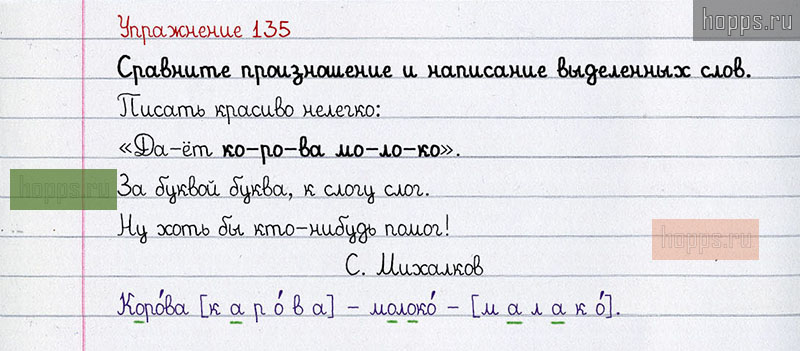 hopps.ru
Упражнение 135
Сравните произношение и написание выделенных слов.
Писать красиво нелегко:
«Да-ёт ко-ро-ва мо-ло-ко».
hopps.ru
За буквой буква, к слогу слог.
Ну хоть бы кто-нибудь помог!
hopps.ru
С. Михалков
Коро́ва [к а р о́ в а] – молоко́ – [м а л а к о́].